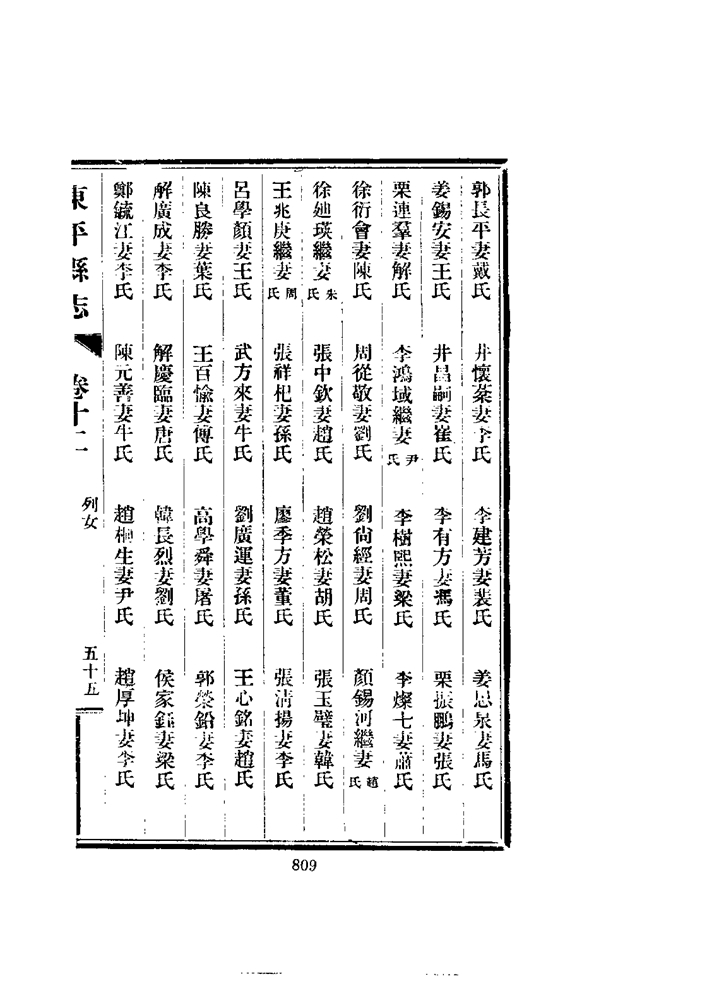 郭長平妻戴氏　井懷棻妻李氏　李建芳妻裴氏　姜思泉妻馬氏
姜錫安妻王氏　井昌嗣妻崔氏　李有方妻馮氏　栗振鵬妻張氏
栗連羣妻解氏　李鴻域繼妻尹氏　李樹熙妻梁氏　李燦七妻蕭氏
徐衍會妻陳氏　周從敬妻劉氏　劉尙經妻周氏　顏錫河繼妻趙氏
徐廸瑛繼妻朱氏　張中欽妻趙氏　趙榮松妻胡氏　張玉璧妻韓氏
王兆庚繼妻周氏　張祥杞妻孫氏　廖季方妻董氏　張淸揚妻李氏
呂學顏妻王氏　武方來妻牛氏　劉廣運妻孫氏　王心銘妻趙氏
陳良勝妻葉氏　王百愉妻傅氏　高學舜妻屠氏　郭榮鉛妻李氏
解廣成妻李氏　解慶臨妻唐氏　韓長烈妻劉氏　侯家鈺妻梁氏
鄭毓江妻李氏　陳元善妻牛氏　趙生妻尹氏　趙厚坤妻李氏
東平縣志　卷十二　列女　五十五
809